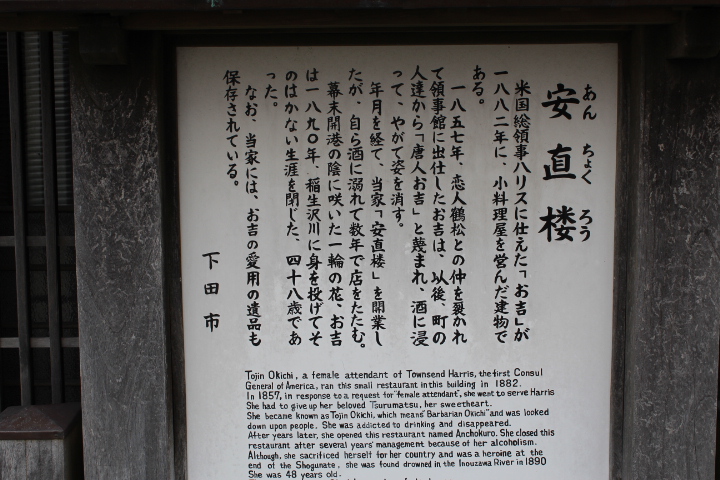 安直楼
あんちょくろう
米国総領事ハリスに仕えた「お吉」が
一八八二年に、小料理屋を営んだ建物で
ある。
一八五七年、恋人鶴松との仲を裂かれ
て領事館に出仕したお吉は、以後、町の
人達から「唐人お吉」と蔑まれ、酒に浸
って、やがて姿を消す。
年月を経て、当家「安直楼」を開業し
たが、自ら酒に溺れて数年で店をたたむ。
幕末開港の陰に咲いた一輪の花、お吉
は一八九〇年、稲生沢川に身を投げてそ
のはかない生涯を閉じた、四十八歳であ
った。
なお、当家には、お吉の愛用の遺品も
保存されている。
下田市
Tojin Okichi, a female attendant of Townsend Harris, the first Consul
General of America, ran this small restaurant in this building in 1882.
In 1857, in response to a request for "female attendant", she went to serve Harris
She had to give up her beloved Tsurumatsu, her sweetheart.
She became known as Tojin Okichi, which means "Barbarian Okichi" and was looked
down upon people. She was addicted to drinking and disappeared.
After years later, she opened this restaurant named Anchokuro. She closed this
restaurant after several years' management because of her alcoholism.
Although, she sacrificed herself for her country and was a heroine at the
end of the Shogunate, she was found drowned in the Inouzawa River in 1890
She was 48 years old.